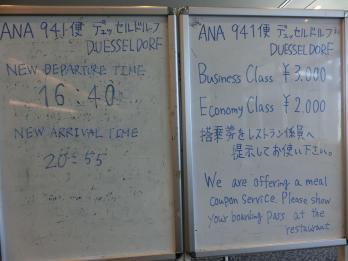 ANA 941便 デュッセルドルフ
DUESSELDORF
NEW DEPARTURE TIME
16:40
NEW ARRIVAL TIME
20:55
ANA 941便 デュッセルドルフ
DUESSELDORF
Business Class ¥3.000
Economy Class ¥2.000
搭乗券をレストラン係員へ
提示してお使い下さい。
We are offering a meal
coupon service. Please show
your boarding pass at the
restaurant.